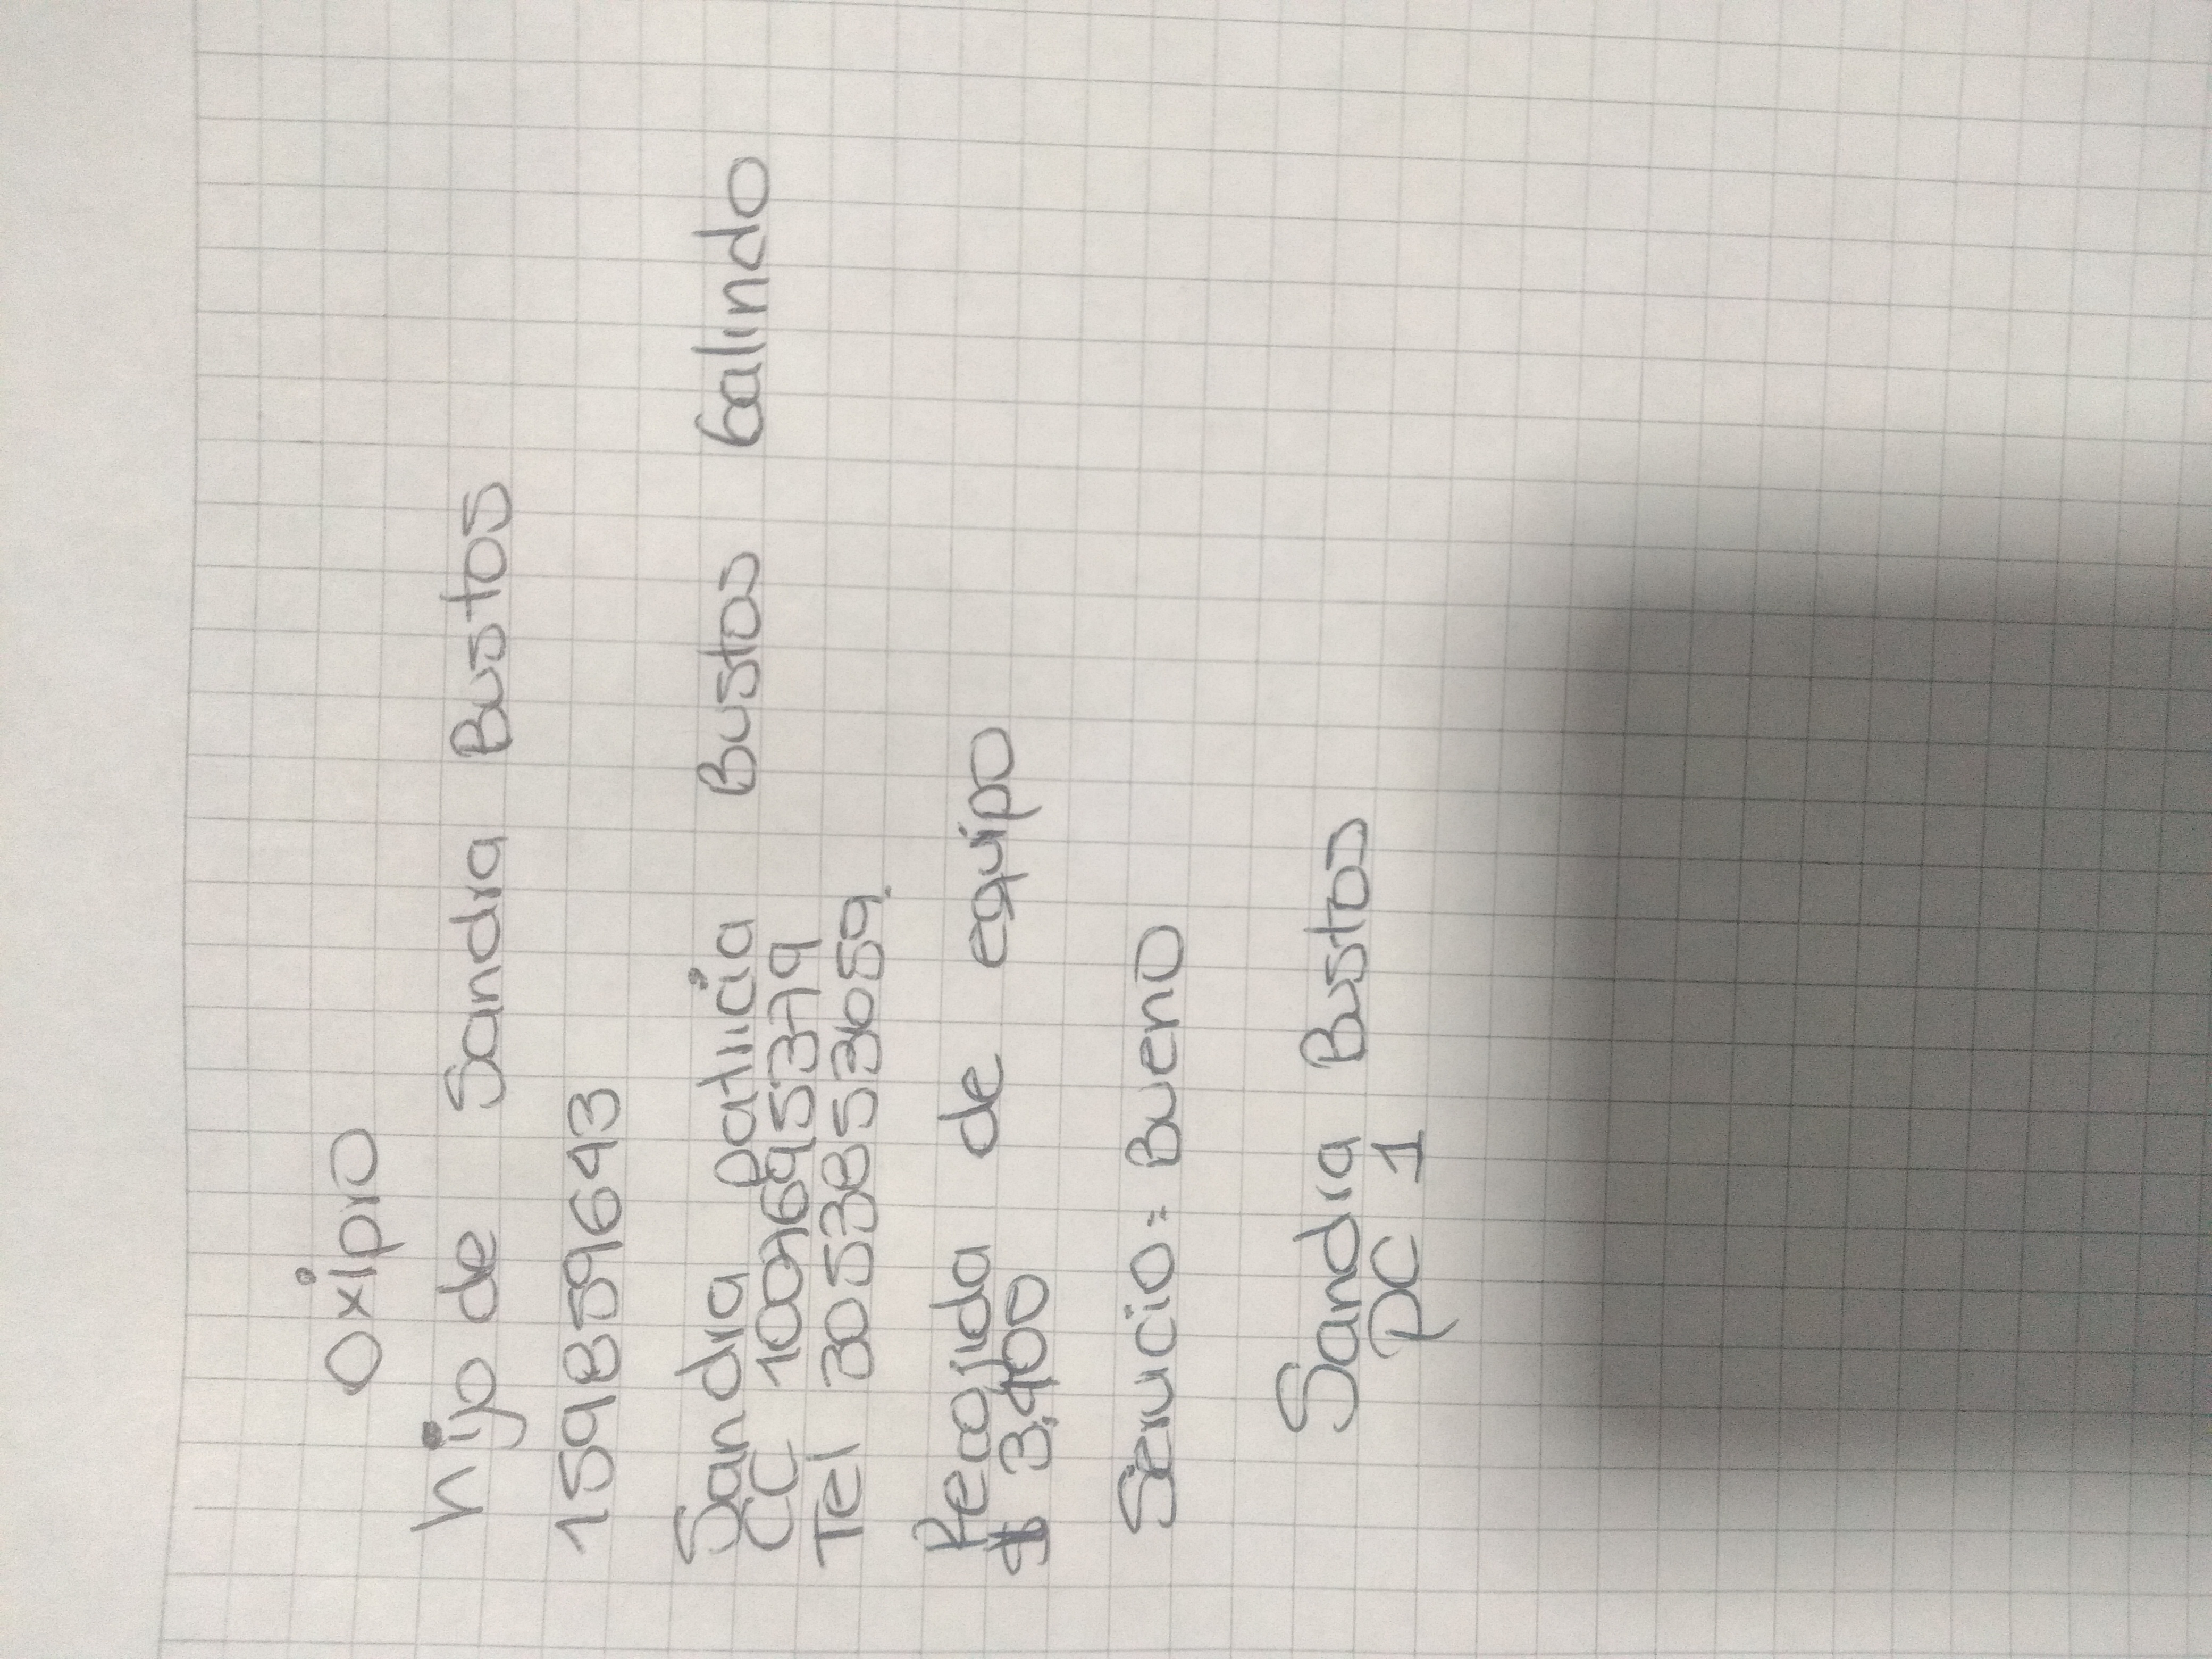 Oxipro
hijo de Sandra Bustos
1598589643
Sandra patricia Bustos Galindo
CC 1007695379
Tel 3053853659.
Recojida de equipo
$ 3.400
Servicio = Bueno
Sandra Bustos
PC 1